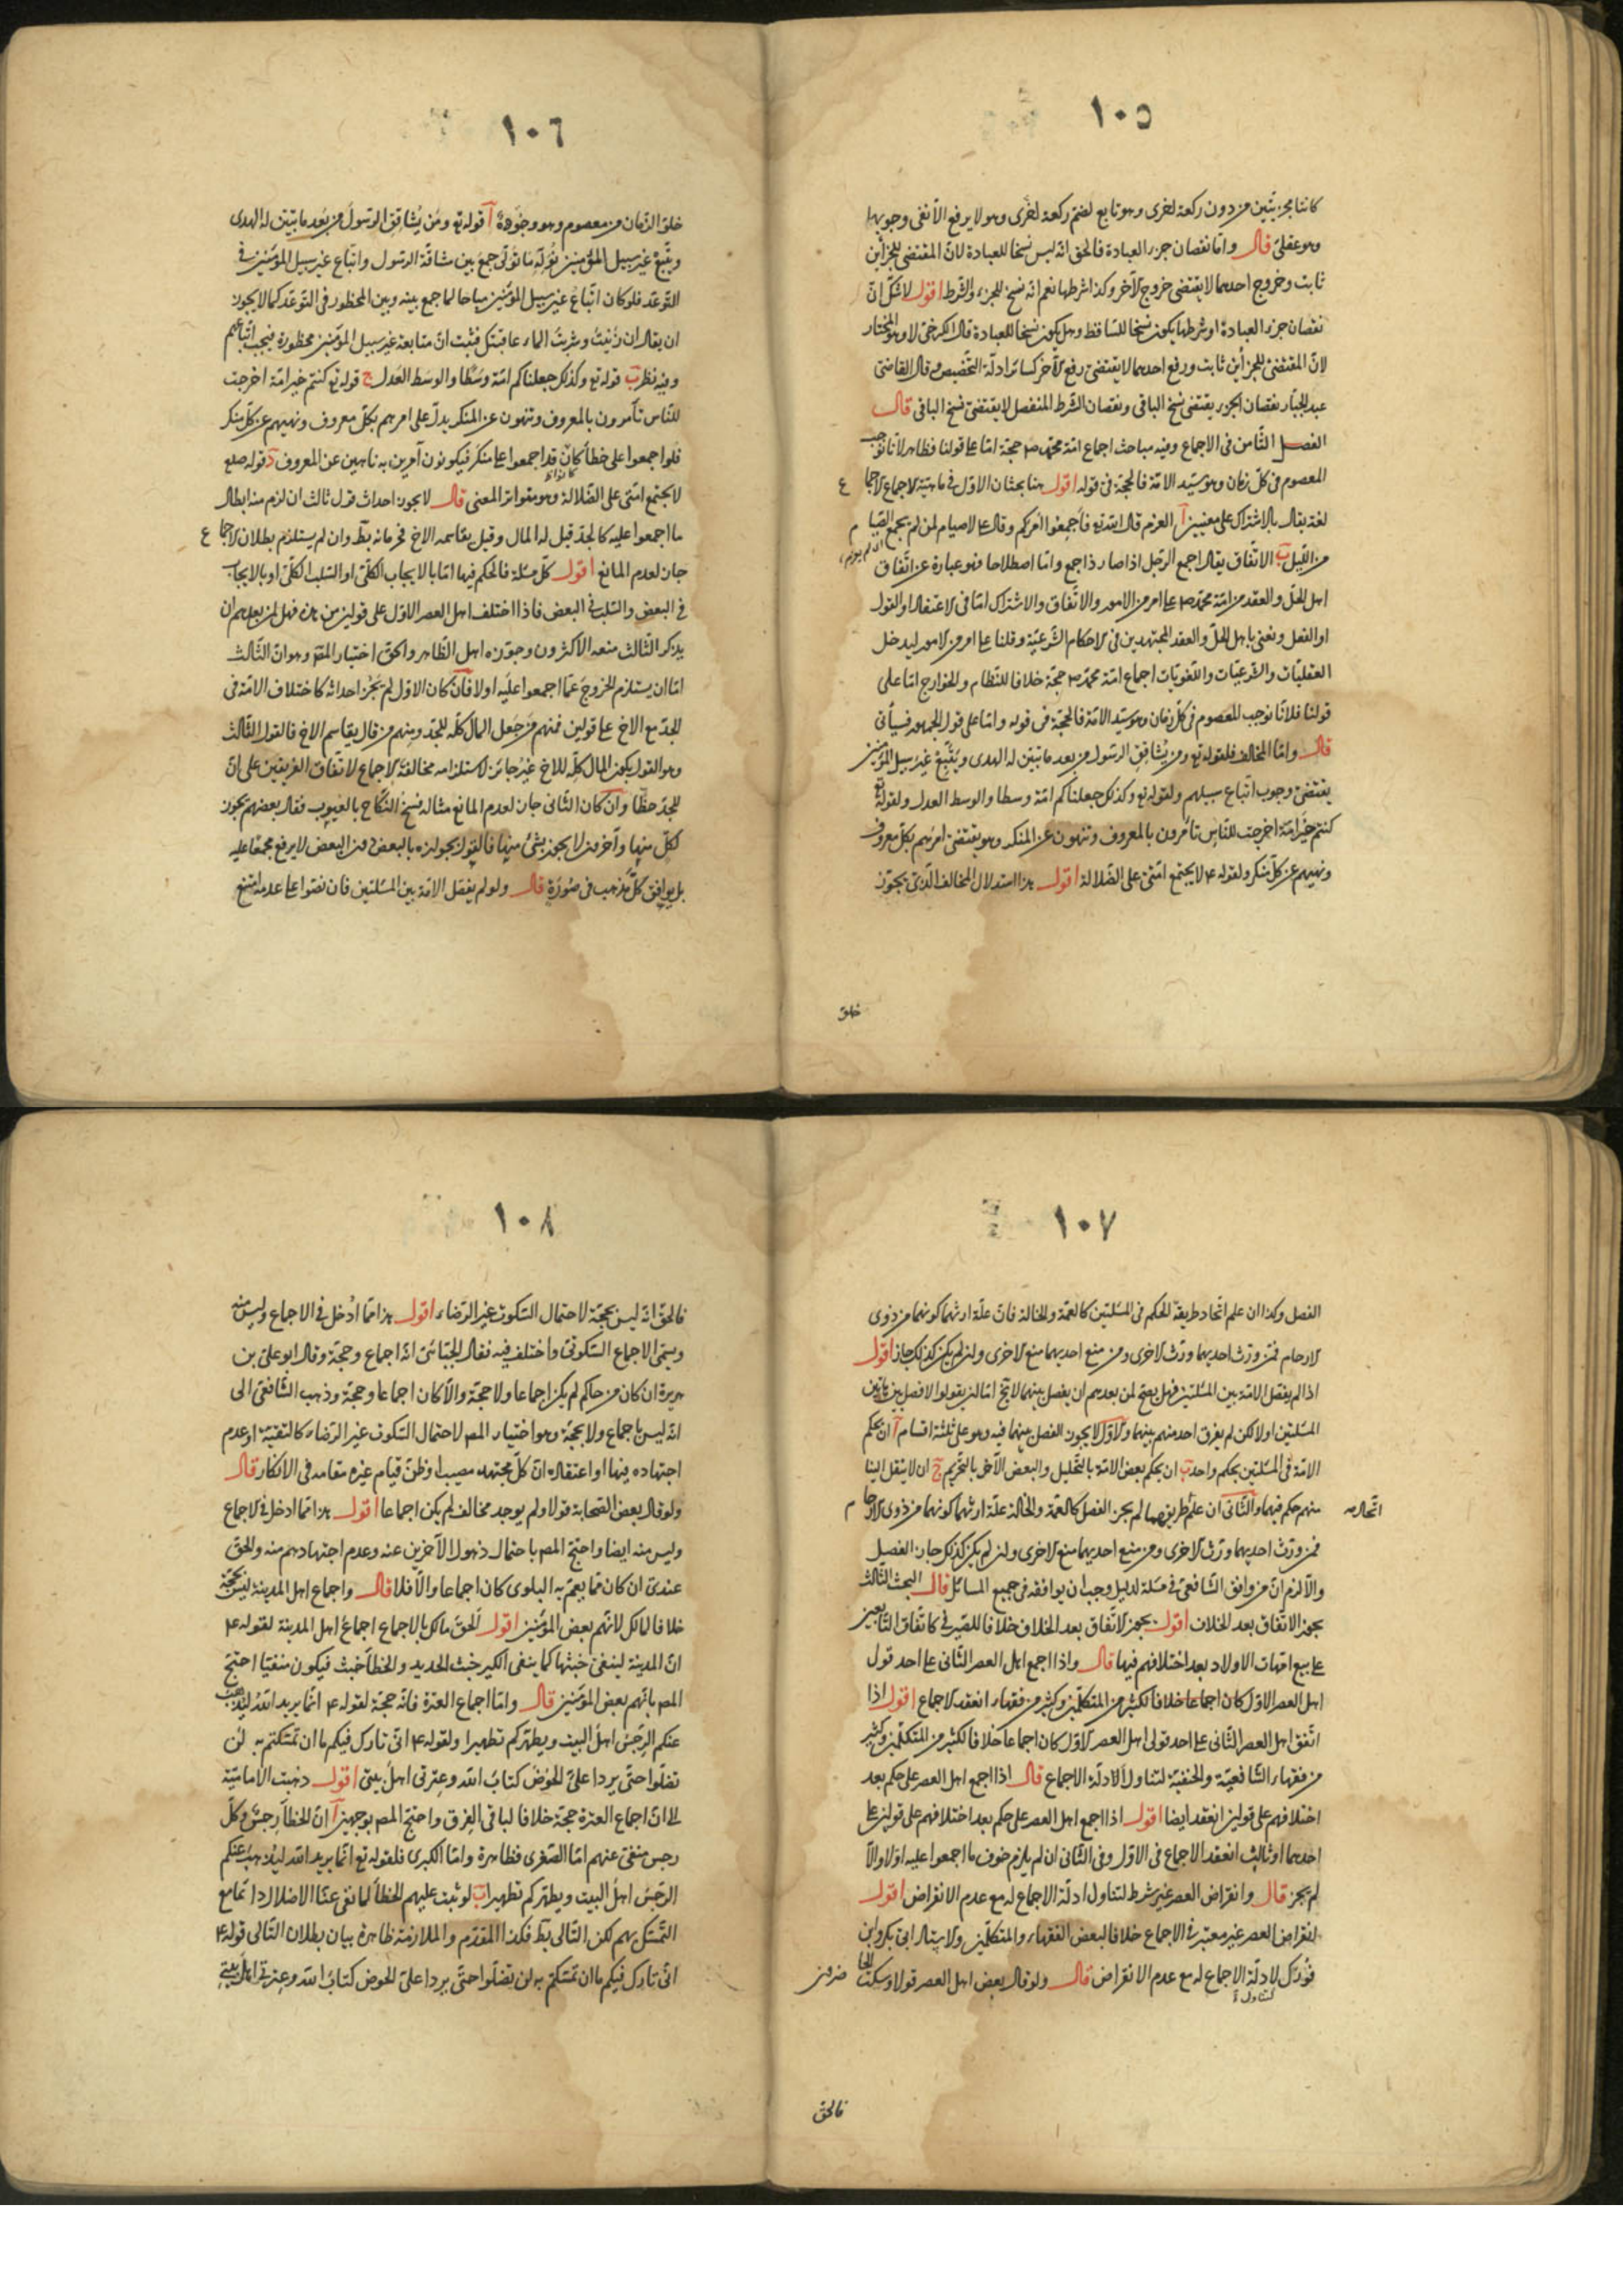 ١٠٥
كانتا مجزيتين من دون ركعة اخرى وهو تابع لضم ركعة اخرى وهو لا يرفع الا نفى وجوبها
وهو عقلى قال واما نقصان جزء العبادة فالحق انه ليس نسخا للعبادة لان المقتضى للجزأين
ثابت وخروج احدهما لا يقتضى خروج الآخر وكذا شرطها نعم انه نسخ للجزء والشرط اقول لا شك ان
نقصان جزء العبادة او شرطها يكون نسخا للساقط وهل يكون نسخا للعبادة قال الكرخى لا وهو المختار
لان المقتضى للجزأين ثابت ورفع احدهما لا يقتضى رفع الآخر كسائر ادلة التخصيص وقال القاضى
عبد الجبار نقصان الجزء يقتضى نسخ الباقى ونقصان الشرط المنفصل لا يقتضى نسخ الباقى قال
الفصل الثامن فى الاجماع وفيه مباحث اجماع امة محمد ص حجة اما على قولنا فظاهر لانا نوجب
المعصوم فى كل زمان وهو سيد الامة فالحجة فى قوله اقول هنا بحثان الاول فى ماهية الاجماع الاجماع
لغة يقال بالاشتراك على معنيين آ العزم قال الله تع فاجمعوا امركم وقال ع لا صيام لمن لم يجمع الصيام
من الليل ب الاتفاق يقال اجمع الرجل اذا صار ذا جمع واما اصطلاحا فهو عبارة عن اتفاق
اهل الحل والعقد من امة محمد ص على امر من الامور والاتفاق والاشتراك اما فى الاعتقاد او القول
او الفعل ونعنى باهل الحل والعقد المجتهدين فى الاحكام الشرعية وقلنا على امر من الامور ليدخل
العقليات والشرعيات واللغويات اجماع امة محمد ص حجة خلافا للنظام والخوارج اما على
قولنا فلانا نوجب المعصوم فى كل زمان وهو سيد الامة فالحجة فى قوله واما على قول الجمهور فسيأتى
قال واما المخالف فلقوله تع ومن يشاقق الرسول من بعد ما تبين له الهدى ويتبع غير سبيل المؤمنين
يقتضى وجوب اتباع سبيلهم ولقوله تع وكذلك جعلناكم امة وسطا والوسط العدل ولقوله تع
كنتم خير امة اخرجت للناس تأمرون بالمعروف وتنهون عن المنكر وهو يقتضى امرهم بكل معروف
ونهيهم عن كل منكر ولقوله ع لا يجتمع امتى على الضلالة اقول هذا استدلال المخالف الذى يجوز
خلو
١٠٦
خلو الزمان من معصوم وهو وجوه آ قوله تع ومن يشاقق الرسول من بعد ما تبين له الهدى
ويتبع غير سبيل المؤمنين نوله ما تولى جمع بين مشاقة الرسول واتباع غير سبيل المؤمنين فى
التوعد فلو كان اتباع غير سبيل المؤمنين مباحا لما جمع بينه وبين المحظور فى التوعد كما لا يجوز
ان يقال ان زنيت وشربت الماء عاقبتك فثبت ان متابعة غير سبيل المؤمنين محظورة فيجب اتباعهم
وفيه نظر ب قوله تع وكذلك جعلناكم امة وسطا والوسط العدل ج قوله تع كنتم خير امة اخرجت
للناس تأمرون بالمعروف وتنهون عن المنكر يدل على امرهم بكل معروف ونهيهم عن كل منكر
فلو اجمعوا على خطأ كان قد اجمعوا على منكر فيكونون آمرين به ناهين عن المعروف د قوله صلع
لا يجتمع امتى على الضلالة وهو متواتر المعنى قال لا يجوز احداث قول ثالث ان لزم منه ابطال
ما اجمعوا عليه كالجد قيل له المال وقيل يقاسمه الاخ فحرمانه بط وان لم يستلزم بطلان الاجماع
جاز لعدم المانع اقول كل مسئلة فالحكم فيها اما بالايجاب الكلى او السلب الكلى او بالايجاب
فى البعض والسلب فى البعض فاذا اختلف اهل العصر الاول على قولين من هذه فهل لمن بعدهم ان
يذكر الثالث منعه الاكثرون وجوزه اهل الظاهر والحق اختيار المصنف وهو ان الثالث
اما ان يستلزم الخروج عما اجمعوا عليه اولا فان كان الاول لم يجز احداثه كاختلاف الامة فى
الجد مع الاخ على قولين فمنهم من جعل المال كله للجد ومنهم من قال يقاسم الاخ فالقول الثالث
وهو القول بكون المال كله للاخ غير جائز لاستلزامه مخالفة الاجماع لاتفاق الفريقين على ان
للجد حظا وان كان الثانى جاز لعدم المانع مثاله فسخ النكاح بالعيوب فقال بعضهم يجوز
لكل منها وآخرون لا يجوز بشئ منها فالقول بجوازه بالبعض دون البعض لا يرفع مجمعا عليه
بل يوافق كل مذهب فى صورة قال ولو لم يفصل الامة بين المسئلتين فان نصوا على عدمه امتنع
١٠٧
الفصل وكذا ان علم اتحاد طريقة الحكم فى المسئلتين كالعمة والخالة فان علة ارثهما كونهما من ذوى
الارحام فمن ورث احديهما ورث الاخرى ومن منع احديهما منع الاخرى وان لم يكن كذلك جاز اقول
اذا لم يفصل الامة بين المسئلتين فهل يصح لمن بعدهم ان يفصل بينهما لا يخ اما ان يقولوا لا فصل بين هاتين
المسئلتين او لا لكن لم يفرق احد منهم بينهما والاول لا يجوز الفصل بينهما فيه وهو على ثلثة اقسام آ ان يحكم
الامة فى المسئلتين بحكم واحد ب ان يحكم بعض الامة بالتحليل والبعض الآخر بالتحريم ج ان لا ينقل الينا
منهم حكم فيهما والثانى ان علم طريقهما لم يجز الفصل كالعمة والخالة علة ارثهما كونهما من ذوى الارحام
فمن ورث احديهما ورث الاخرى ومن منع احديهما منع الاخرى وان لم يكن كذلك جاز الفصل
والا لزم ان من وافق الشافعى فى مسئلة لدليل وجب ان يوافقه فى جميع المسائل قال البحث الثالث
يجوز الاتفاق بعد الخلاف اقول يجوز الاتفاق بعد الخلاف خلافا للصيرفى كاتفاق التابعين
على بيع امهات الاولاد بعد اختلافهم فيها قال واذا اجمع اهل العصر الثانى على احد قولى
اهل العصر الاول كان اجماعا خلافا لكثير من المتكلمين وكثير من فقهاء انعقد الاجماع اقول اذا
اتفق اهل العصر الثانى على احد قولى اهل العصر الاول كان اجماعا خلافا لكثير من المتكلمين وكثير
من فقهاء الشافعية والحنفية لتناول ادلة الاجماع قال اذا اجمع اهل العصر على حكم بعد
اختلافهم على قولين انعقد ايضا اقول اذا اجمع اهل العصر على حكم بعد اختلافهم على قولين على
احدهما او ثالث انعقد الاجماع فى الاول وفى الثانى ان لم يلزم خوف ما اجمعوا عليه اولا والا
لم يجز قال وانقراض العصر غير شرط لتناول ادلة الاجماع له مع عدم الانقراض اقول
انقراض العصر غير معتبر فى الاجماع خلافا لبعض الفقهاء والمتكلمين والاستاد ابى بكر وابن
فورك لادلة الاجماع له مع عدم الانقراض قال ولو قال بعض اهل العصر قولا وسكت الحاضرون
فالحق
١٠٨
فالحق انه ليس بحجة لاحتمال السكوت غير الرضاء اقول هذا مما ادخل فى الاجماع وليس منه
ويسمى الاجماع السكوتى واختلف فيه فقال الجبائى انه اجماع وحجة وقال ابو على بن
هريرة ان كان من حاكم لم يكن اجماعا ولا حجة والا كان اجماعا وحجة وذهب الشافعى الى
انه ليس باجماع ولا بحجة وهو اختيار المص لاحتمال السكوت غير الرضاء كالتقية او عدم
اجتهاده فيها او اعتقاده ان كل مجتهد مصيب او ظن قيام غيره مقامه فى الانكار قال
ولو قال بعض الصحابة قولا ولم يوجد مخالف لم يكن اجماعا اقول هذا مما ادخل فى الاجماع
وليس منه ايضا واحتج المص باحتمال ذهول الآخرين عنه وعدم اجتهادهم منه والحق
عندى ان كان مما يعم به البلوى كان اجماعا والا فلا قال واجماع اهل المدينة ليس بحجة
خلافا لمالك لانهم بعض المؤمنين اقول الحق مالك بالاجماع اجماع اهل المدينة لقوله ع
ان المدينة لينفى خبثها كما ينفى الكير خبث الحديد والخطأ خبث فيكون منفيا احتج
المص بانهم بعض المؤمنين قال واما اجماع العترة فانه حجة لقوله ع انما يريد الله ليذهب
عنكم الرجس اهل البيت ويطهركم تطهيرا ولقوله ع انى تارك فيكم ما ان تمسكتم به لن
تضلوا حتى يردا على الحوض كتاب الله وعترتى اهل بيتى اقول ذهبت الامامية
الى ان اجماع العترة حجة خلافا لباقى الفرق واحتج المص بوجهين آ ان الخطأ رجس وكل
رجس منفى عنهم اما الصغرى فظاهرة واما الكبرى فلقوله تع انما يريد الله ليذهب عنكم
الرجس اهل البيت ويطهركم تطهيرا ب لو ثبت عليهم الخطأ لما نفى عنا الاضلال دائما مع
التمسك بهم لكن التالى بط فكذا المقدم والملازمة ظاهرة بيان بطلان التالى قوله ع
انى تارك فيكم ما ان تمسكتم به لن تضلوا حتى يردا على الحوض كتاب الله وعترتى اهل بيتى